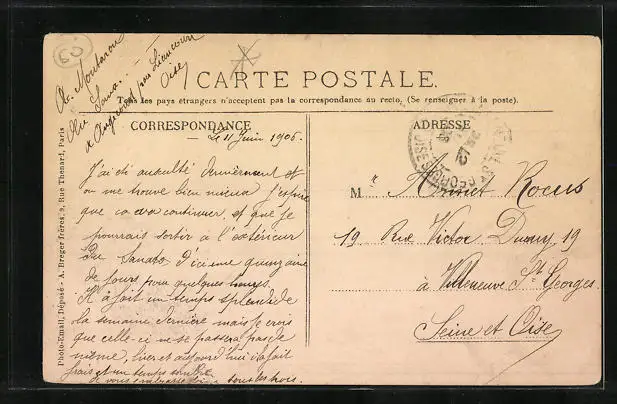 A. Montaron
Au Sana.
à Angicourt par Liancourt
Oise
CARTE POSTALE.
Tous les pays étrangers n'acceptent pas la correspondance au recto. (Se renseigner à la poste).
CORRESPONDANCE
Le 11 Juin 1906.
J'ai été ausculté dernièrement et
on me trouve bien mieux J'espère
que ça va continuer, et que je
pourrais sortir à l'extérieur
du Sanato d'ici une quinzaine
de jours pour quelques temps.
Il a fait un temps splendide
la semaine dernière mais je crois
que celle-ci ne se passera pas de
même, hier et aujourd'hui il a fait
frais et un temps sombre
Je vous embrasse tous les trois.
ADRESSE
Mr Rocus
19 Rue Victor Duruy, 19
à Villeneuve St Georges
Seine et Oise
Photo-Email, Déposé - A. Breger frères, 9, Rue Thenard, Paris